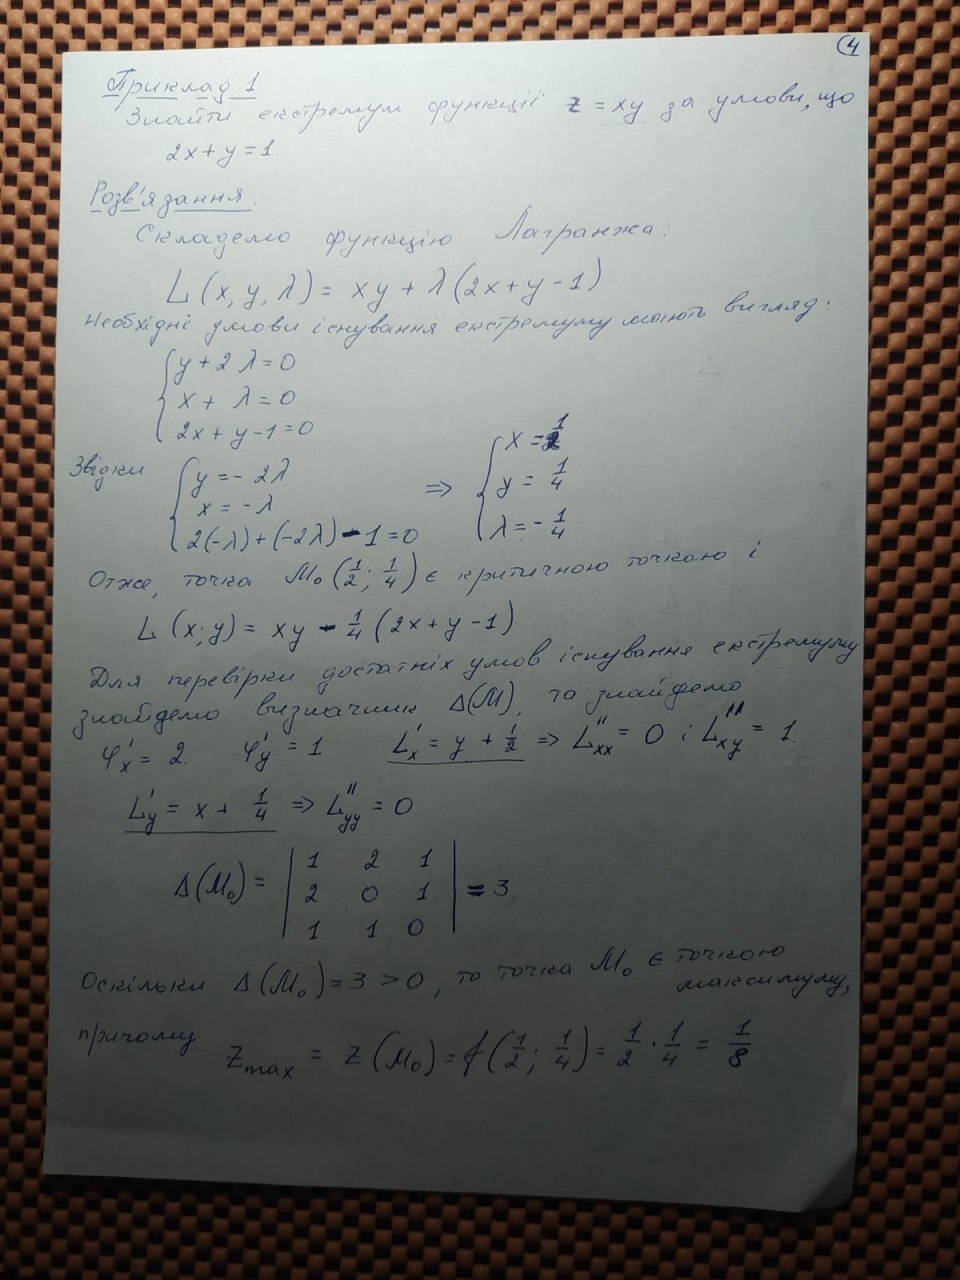 (4
Приклад 1.
Знайти екстремум функції z = xy за умови, що
2x+y=1.
Розв'язання.
Складемо функцію Лагранжа:
L(x, y, λ) = xy + λ(2x+y-1)
Необхідні умови існування екстремуму мають вигляд:
y + 2λ = 0
x + λ = 0
2x + y - 1 = 0
Звідки
y = - 2λ
x = - λ
2(-λ) + (-2λ) - 1 = 0
=>
x = 1/2
y = 1/4
λ = - 1/4
Отже, точка M₀(1/2; 1/4) є критичною точкою і
L(x; y) = xy - 1/4 (2x+y-1)
Для перевірки достатніх умов існування екстремуму
знайдемо визначник Δ(M), то знайдемо
φ'x = 2. φ'y = 1 L'x = y + 1/2 => L''xx = 0 і L''xy = 1.
L'y = x + 1/4 => L''yy = 0
Δ(M₀) = | 1 2 1 |
| 2 0 1 | = 3
| 1 1 0 |
Оскільки Δ(M₀) = 3 > 0, то точка M₀ є точкою
максимуму,
причому
Zmax = z(M₀) = f(1/2; 1/4) = 1/2 · 1/4 = 1/8